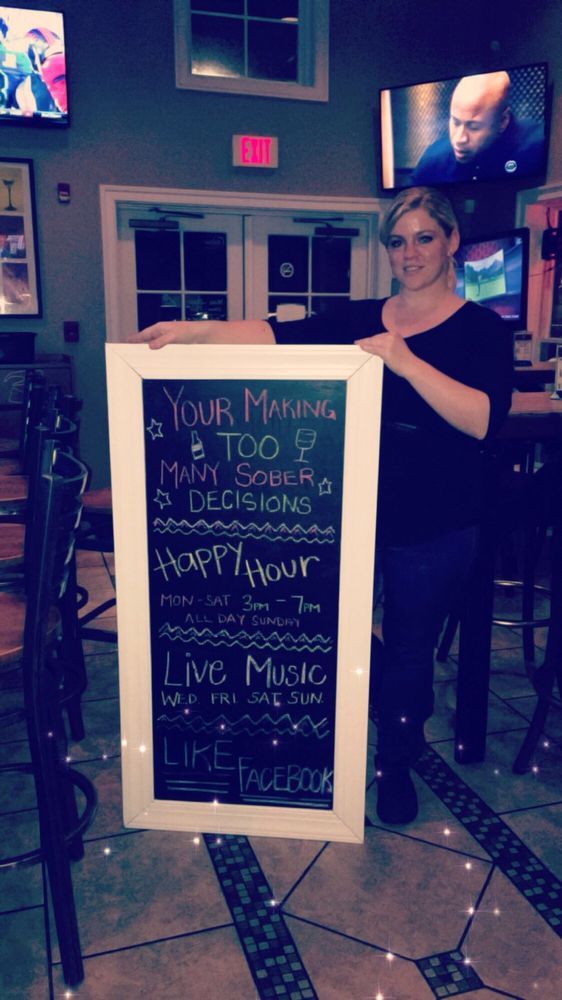 EXIT
YOUR MAKING
TOO
MANY SOBER
DECISIONS
HAPPY HOUR
MON - SAT 3PM - 7PM
ALL DAY SUNDAY
LIVE MUSIC
WED FRI SAT SUN
LIKE
FACEBOOK